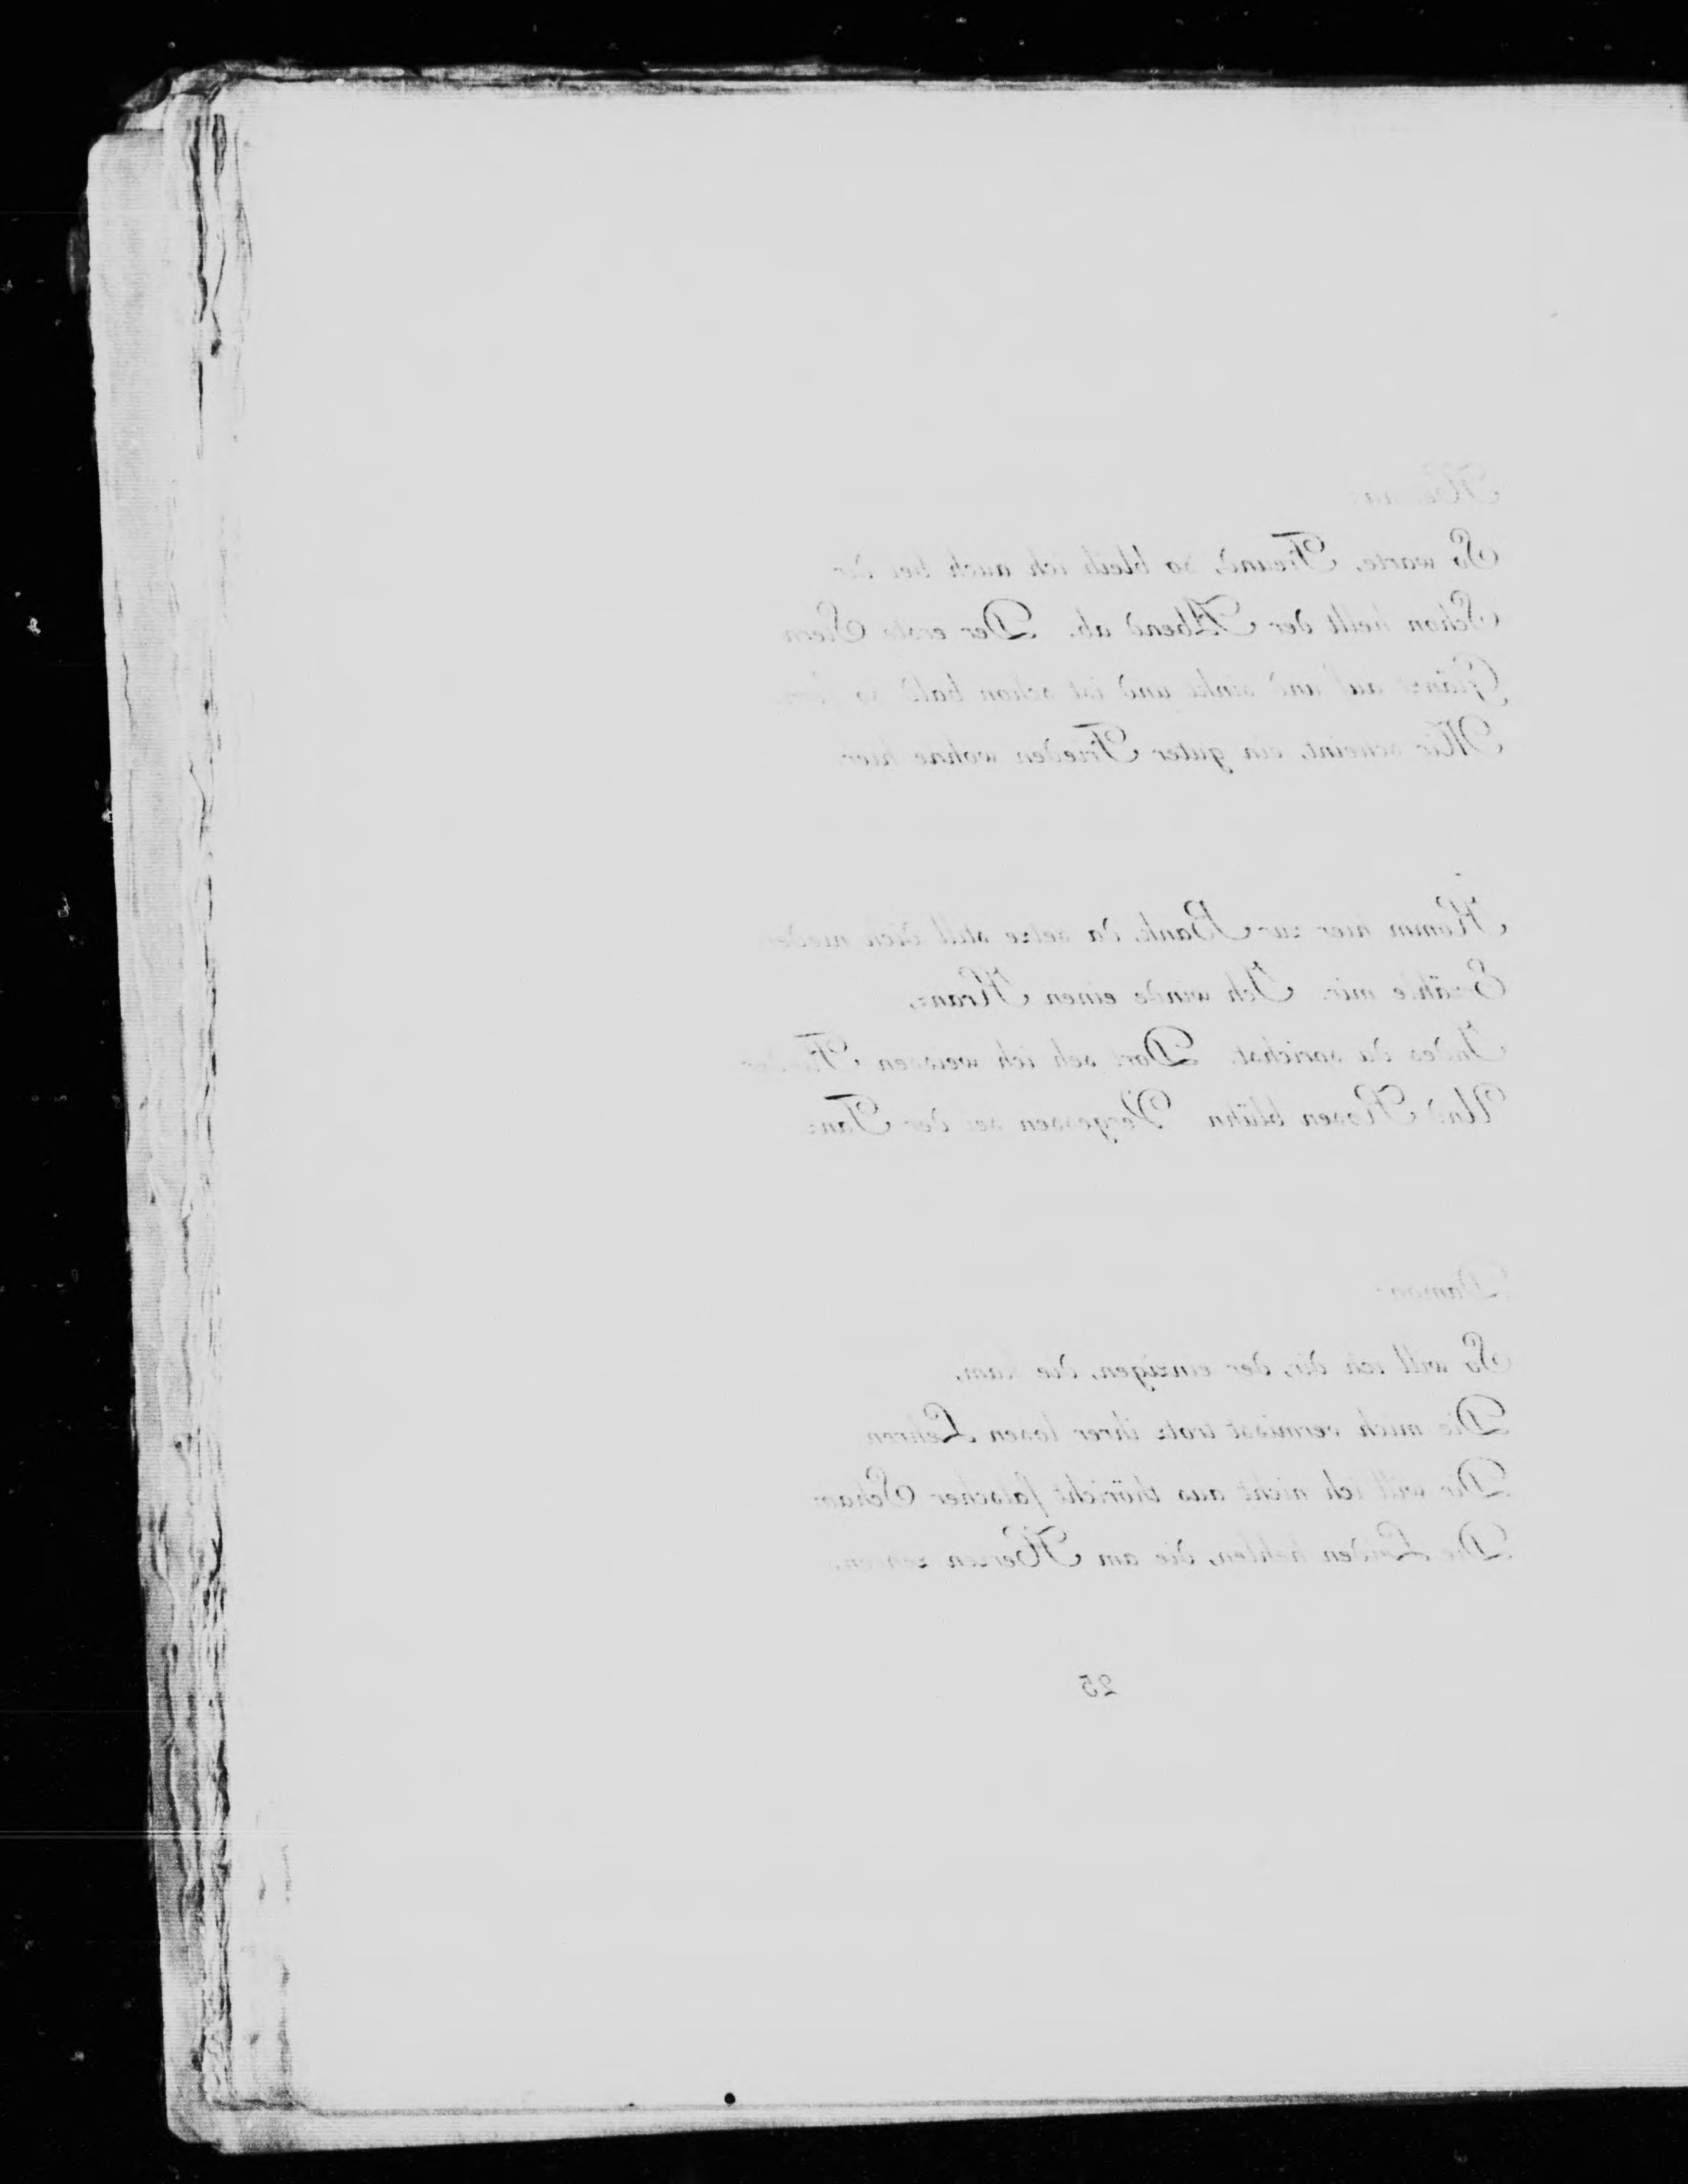 So warte, Freund, so bleib ich auch bei dir
Schon hellt der Abend ab. Der erste Stern
Glänzt auf und sinkt und ist schon bald so
Mir scheint, ein guter Frieden wohne hier.
Komm hier zur Bank, da setze still dich nieder
Erzähle mir. Ich winde einen Kranz,
Indes du sprichst. Dort seh ich weissen Flieder
Und Rosen blühn Vergessen sei der Tanz
Damon:
So will ich dir, der einzigen, die kam,
Die mich vermisst trotz ihrer losen Lehren
Dir will ich nicht aus thöricht falscher Scham
Die Leiden hehlen, die am Herzen zehren.
25